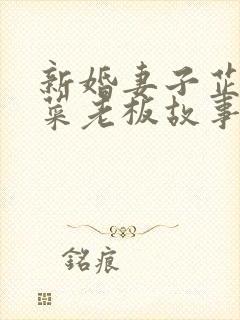 新婚妻子芷
菜老板故事
銘痕